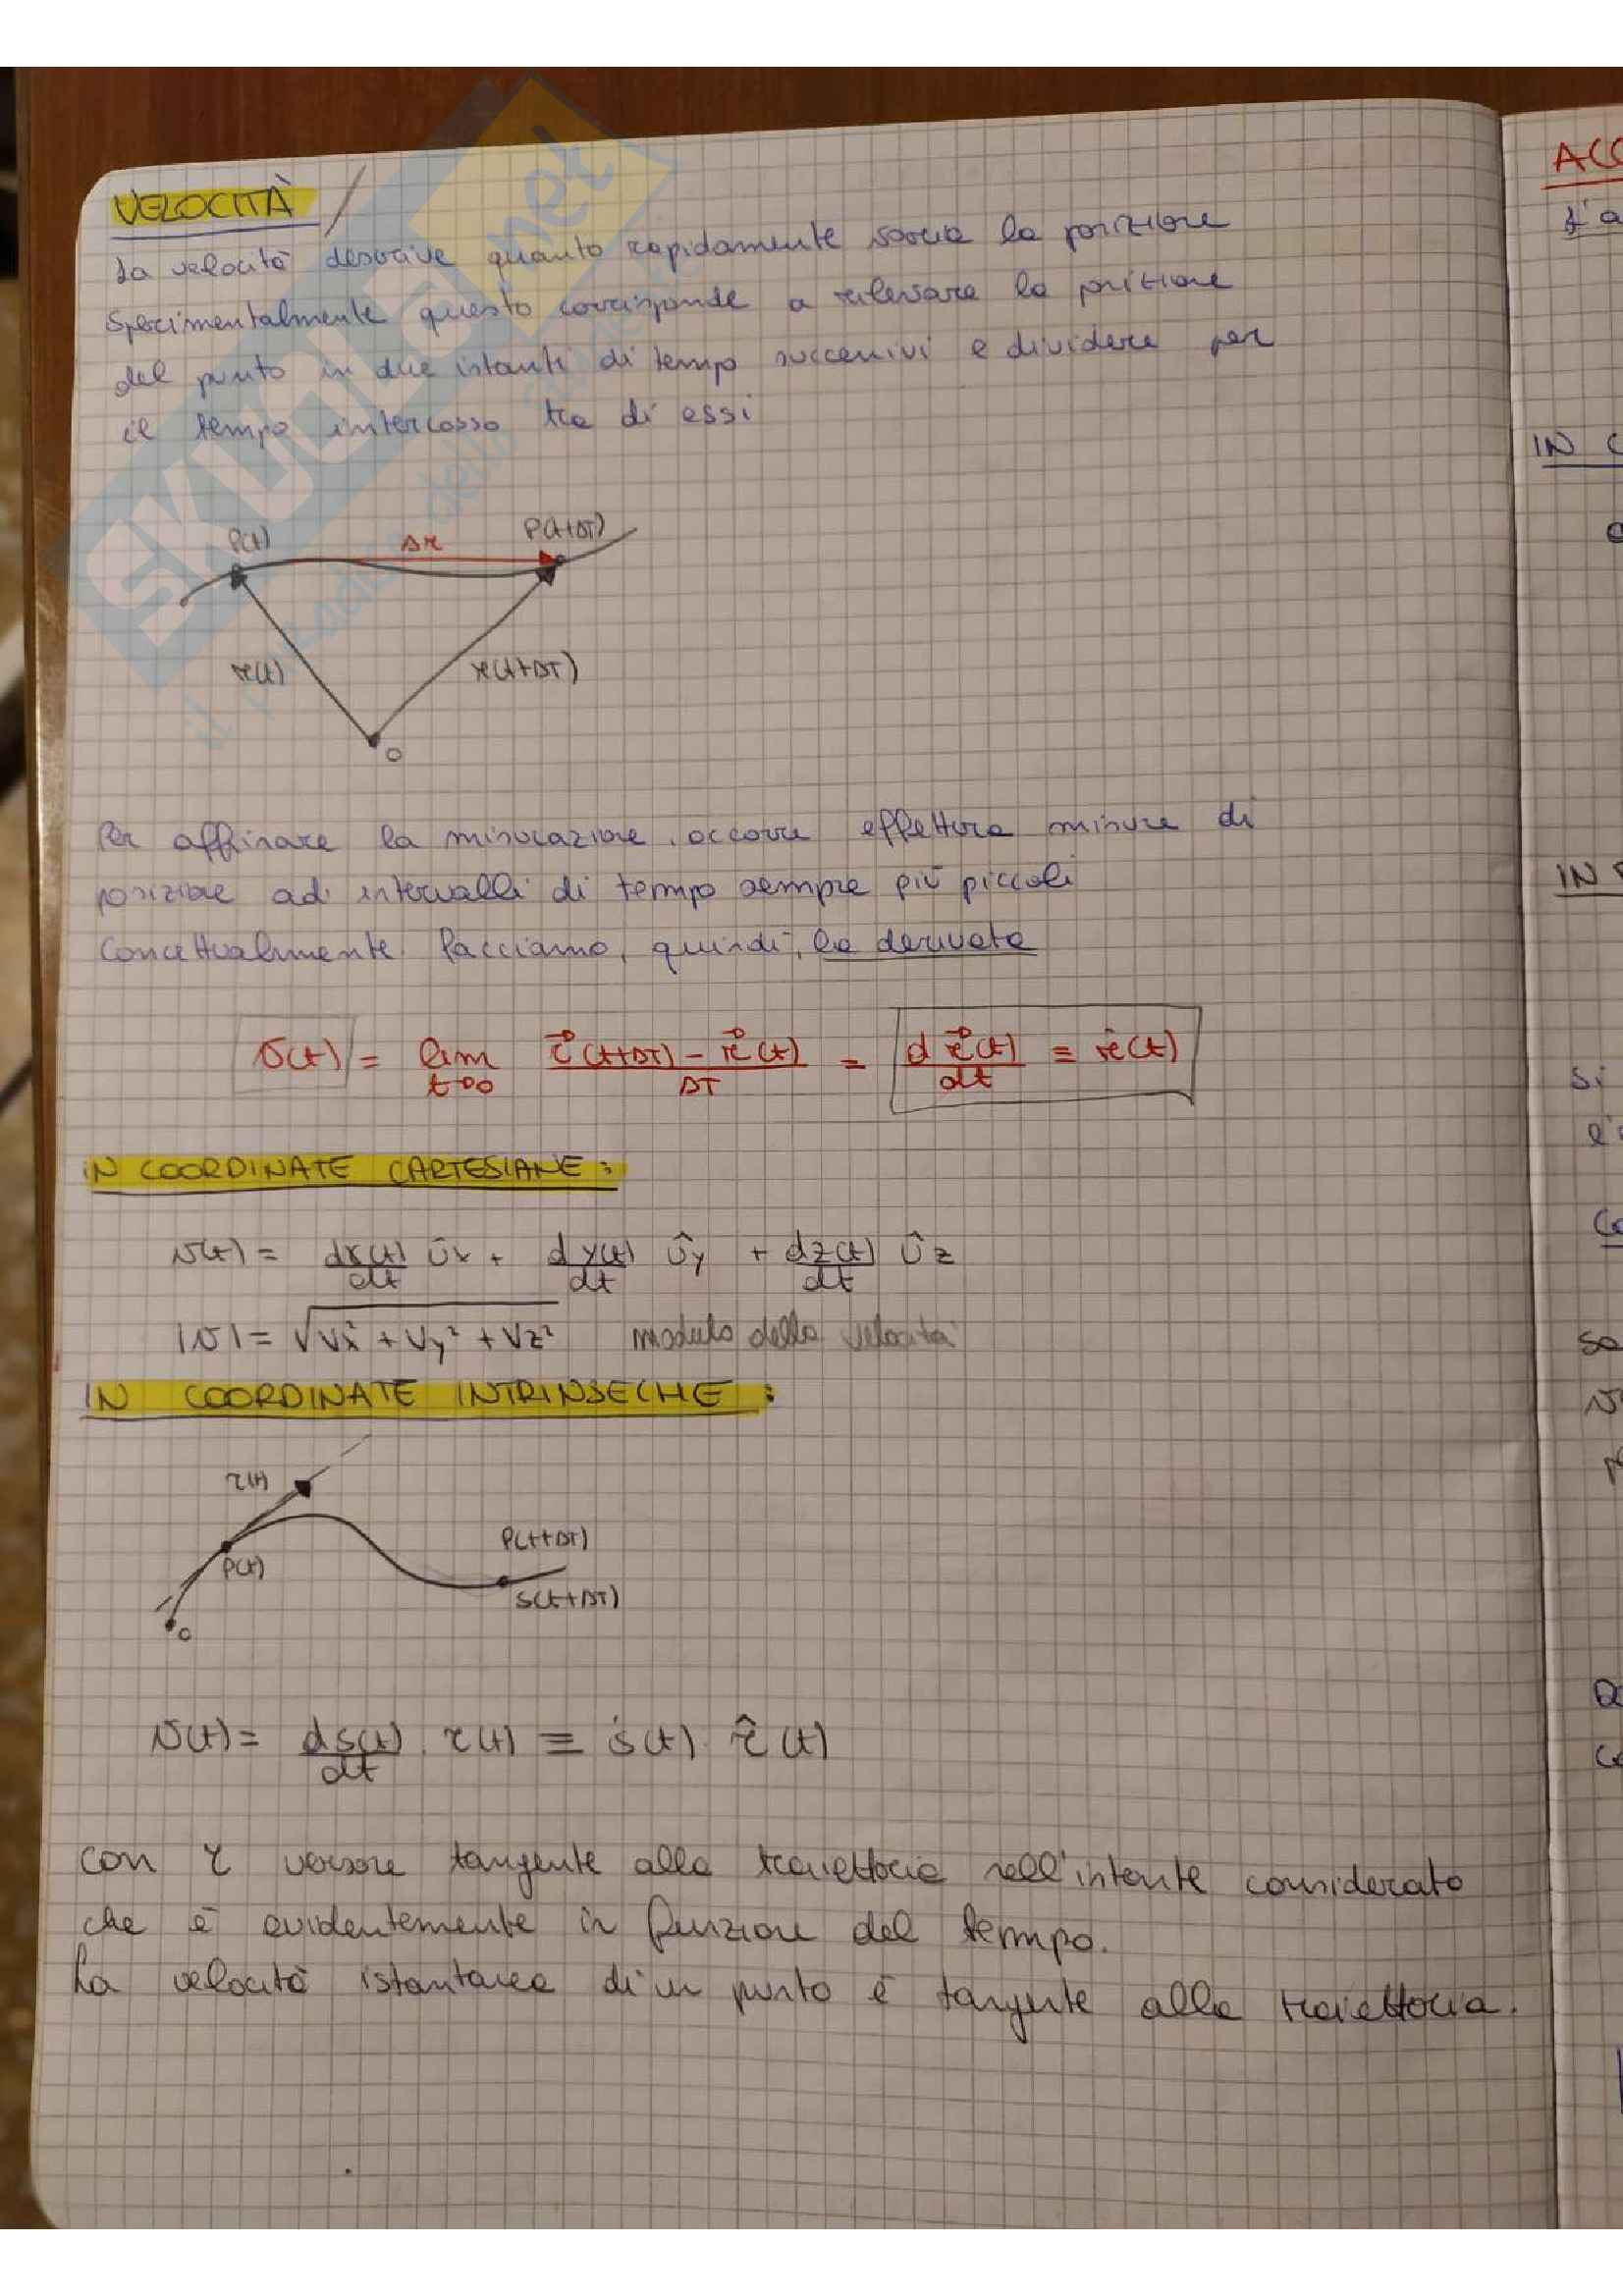 VELOCITÀ
La velocità descrive quanto rapidamente varia la posizione
Sperimentalmente questo corrisponde a rilevare la posizione
del punto in due istanti di tempo successivi e dividere per
il tempo intercorso tra di essi
P(t) Δr P(t+ΔT)
r(t) r(t+ΔT)
O
Per affinare la misurazione, occorre effettura misure di
posizione ad intervalli di tempo sempre più piccoli
Concettualmente facciamo, quindi, la derivata
v(t) = lim t→0 r⃗(t+ΔT) - r⃗(t) / ΔT = d r⃗(t) / dt ≡ ṙ(t)
IN COORDINATE CARTESIANE:
v(t) = dx(t)/dt ûx + dy(t)/dt ûy + dz(t)/dt ûz
|v| = √Vx² + Vy² + Vz² modulo della velocità
IN COORDINATE INTRINSECHE:
τ(t)
P(t) P(t+ΔT)
S(t+ΔT)
O
v(t) = ds(t)/dt · τ(t) ≡ ṡ(t) · τ̂(t)
con τ versore tangente alla traiettoria nell'intante considerato
che è evidentemente in funzione del tempo.
La velocità istantanea di un punto è tangente alla traiettoria.
ACC
L'a
IN C
IN P
Si
Co
so
SKUOLA.net